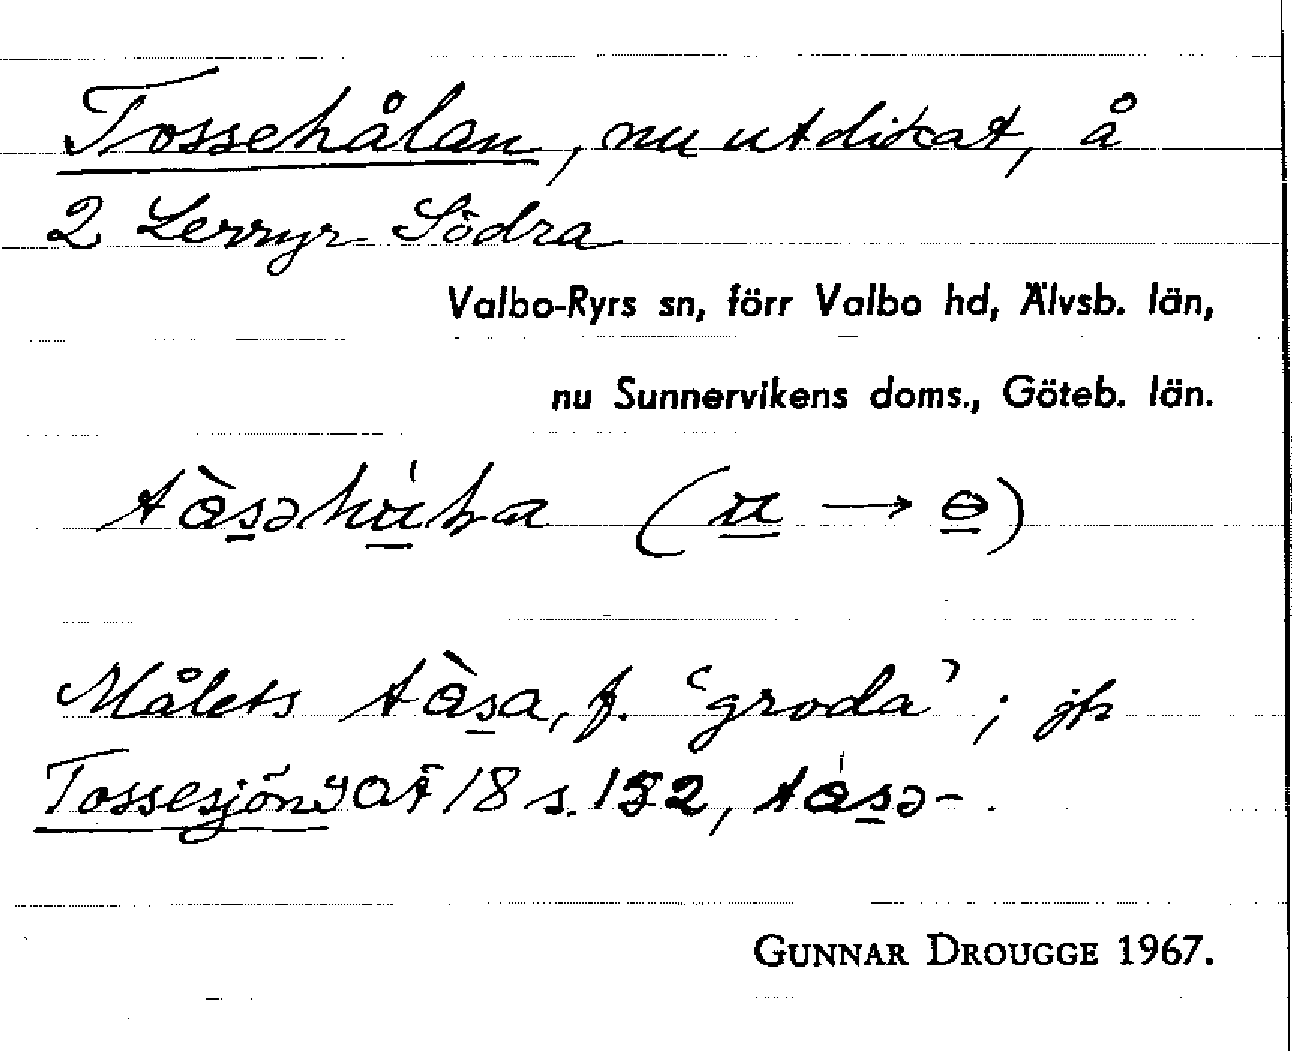 Tossehålan, nu utdikat, å
2 Lerryr Södra
Valbo-Ryrs sn, förr Valbo hd, Älvsb. län,
nu Sunnervikens doms., Göteb. län.
Målets f. 'groda'; jfr
Tossesjön SOÄ 18 s. 132,
GUNNAR DROUGGE 1967.